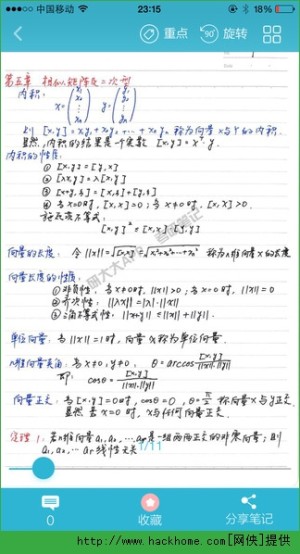 中国移动 23:15 18%
重点 90° 旋转
第五章 相似矩阵及二次型
内积:
x = (x₁ x₂ ⋮ xₙ) y = (y₁ y₂ ⋮ yₙ)
则 [x,y] = x₁y₁ + x₂y₂ + … + xₙyₙ 称为向量x与y的内积.
显然, 内积的结果是一个实数 [x,y] = xᵀ·y.
内积的性质:
① [x,y] = [y,x]
② [λx,y] = λ[x,y]
③ [x+y,z] = [x,z]+[y,z]
④ 当x=0时, [x,x]=0; 当x≠0时, [x,x]>0.
施瓦茨不等式:
[x,y]² ≤ [x,x]·[y,y]
向量的长度: 令 ||x|| = √[x,x] = √x₁²+x₂²+…+xₙ² 称为n维向量x的长度
向量长度的性质:
① 非负性: 当x≠0时, ||x||>0; 当x=0时, ||x||=0
② 齐次性: ||λx|| = |λ|·||x||
③ 三角不等式性: ||x+y|| ≤ ||x||+||y||.
单位向量: 当||x||=1时, 向量x称为单位向量.
n维向量夹角: 当x≠0, y≠0, θ = arccos [x,y] / ||x||·||y||
即: cosθ = [x,y] / ||x||·||y||
向量正交: 当[x,y]=0时, cosθ=0, θ=π/2 称向量x与y正交.
显然 若x=0时, x与任何向量正交.
定理1: 若n维向量a₁,a₂,…,aᵣ是一组两两正交的非零向量; 则
a₁,a₂,…aᵣ线性无关
1/11
0 收藏 分享笔记
http://www.hackhome.com[网侠]提供